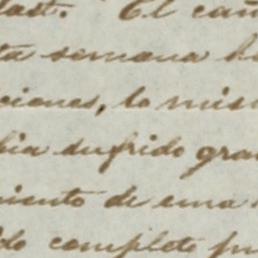 last. El cañ
ta semana h
ciones, lo mis
bia sufrido gra
miento de una
do completo pu